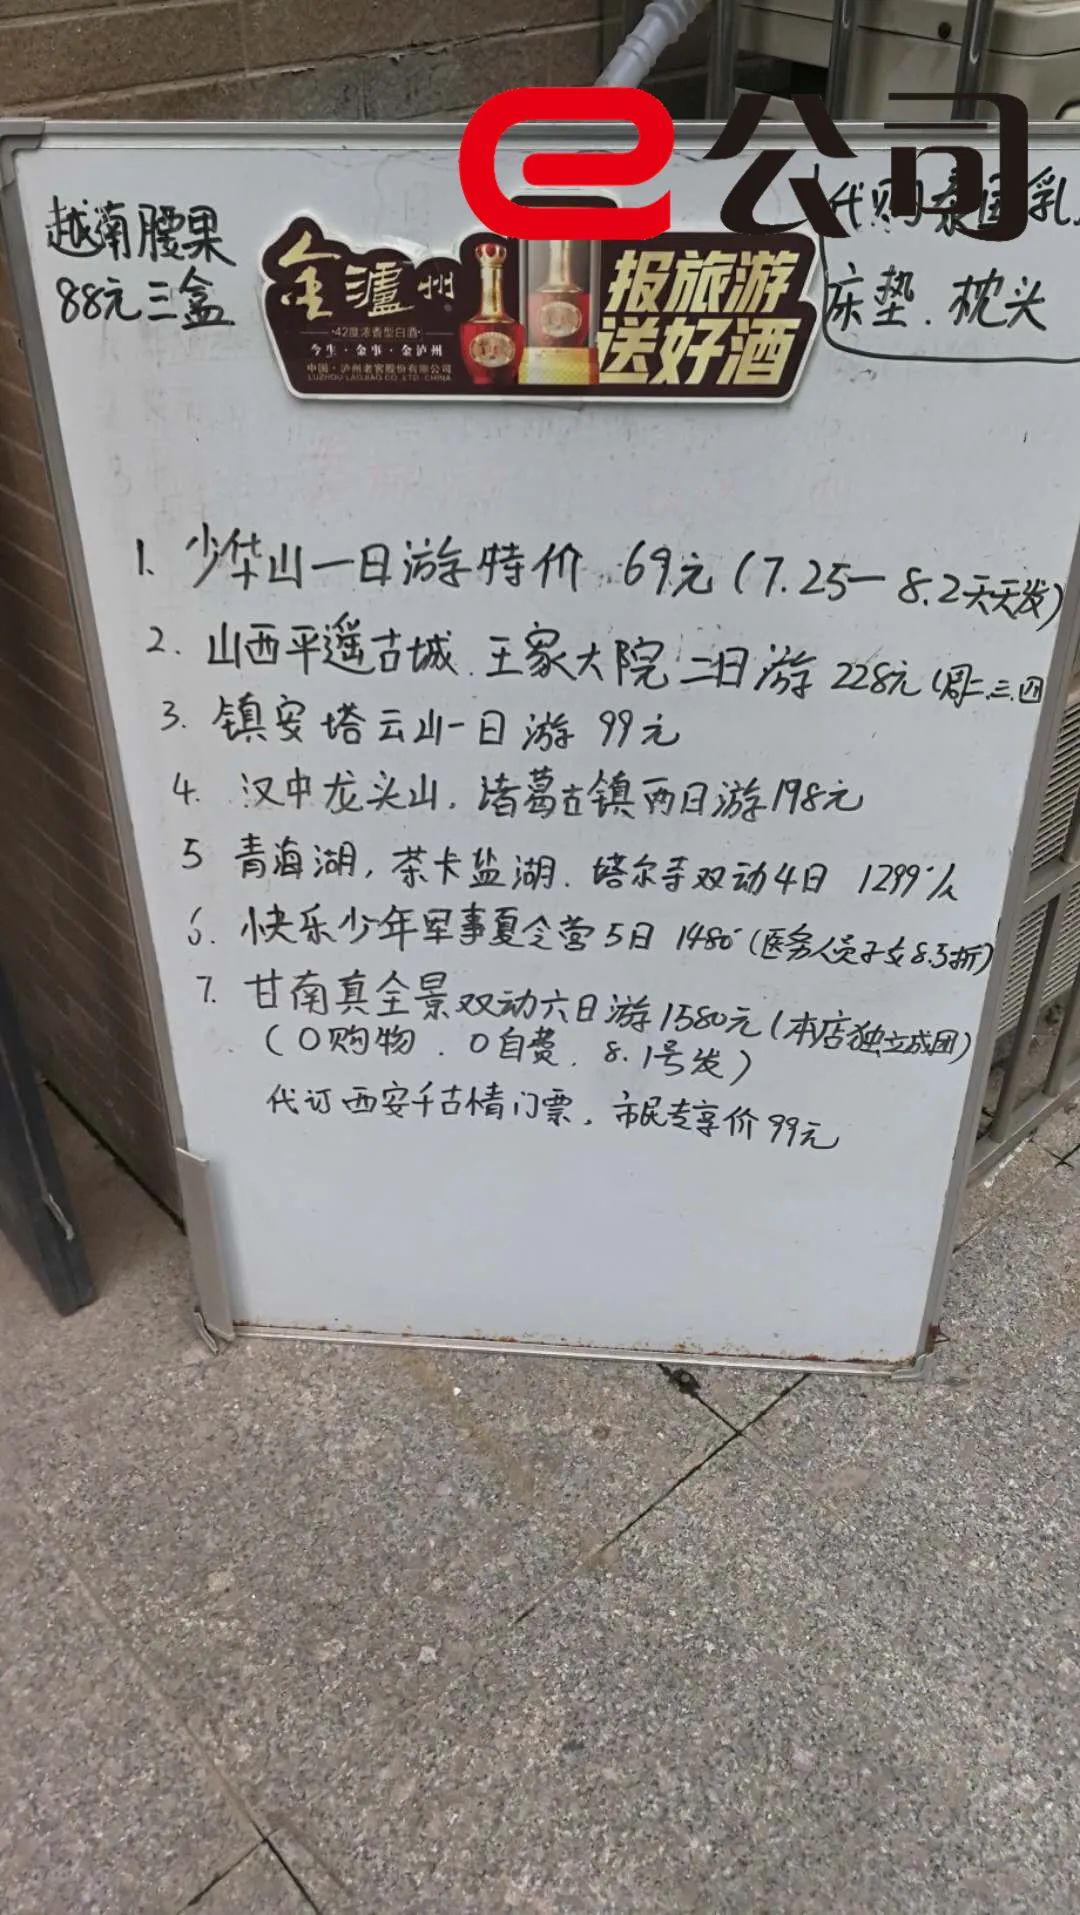 e公司
越南腰果
88元三盒
金泸州
42度浓香型白酒
今生·金事·金泸州
中国·泸州老窖股份有限公司
LUZHOU LAOJIAO CO.,LTD.CHINA
报旅游
送好酒
代购泰国乳
床垫.枕头
1. 少华山一日游特价 69元(7.25—8.2天天发)
2. 山西平遥古城.王家大院二日游 228元(周二.三.四
3. 镇安塔云山一日游 99元
4. 汉中龙头山.诸葛古镇两日游198元
5 青海湖,茶卡盐湖.塔尔寺双动4日 1299/人
6. 快乐少年军事夏令营5日 1480(医务人员子女8.5折)
7. 甘南真全景双动六日游1580元(本店独立成团)
(0购物.0自费.8.1号发)
代订西安千古情门票.市民专享价99元